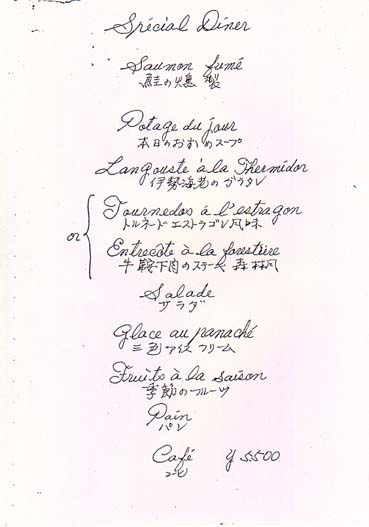 Spécial Dîner
Saumon fumé
鮭の燻製
Potage du jour
本日のおすすめスープ
Langouste à la Thermidor
伊勢海老のグラタン
or
Tournedos à l'estragon
トルネードエストラゴン風味
Entrecôte à la forestière
牛鞍下肉のステーキ 森林風
Salade
サラダ
Glace au panaché
三色アイスクリーム
Fruits à la saison
季節のフルーツ
Pain
パン
Café ¥5500
コーヒ